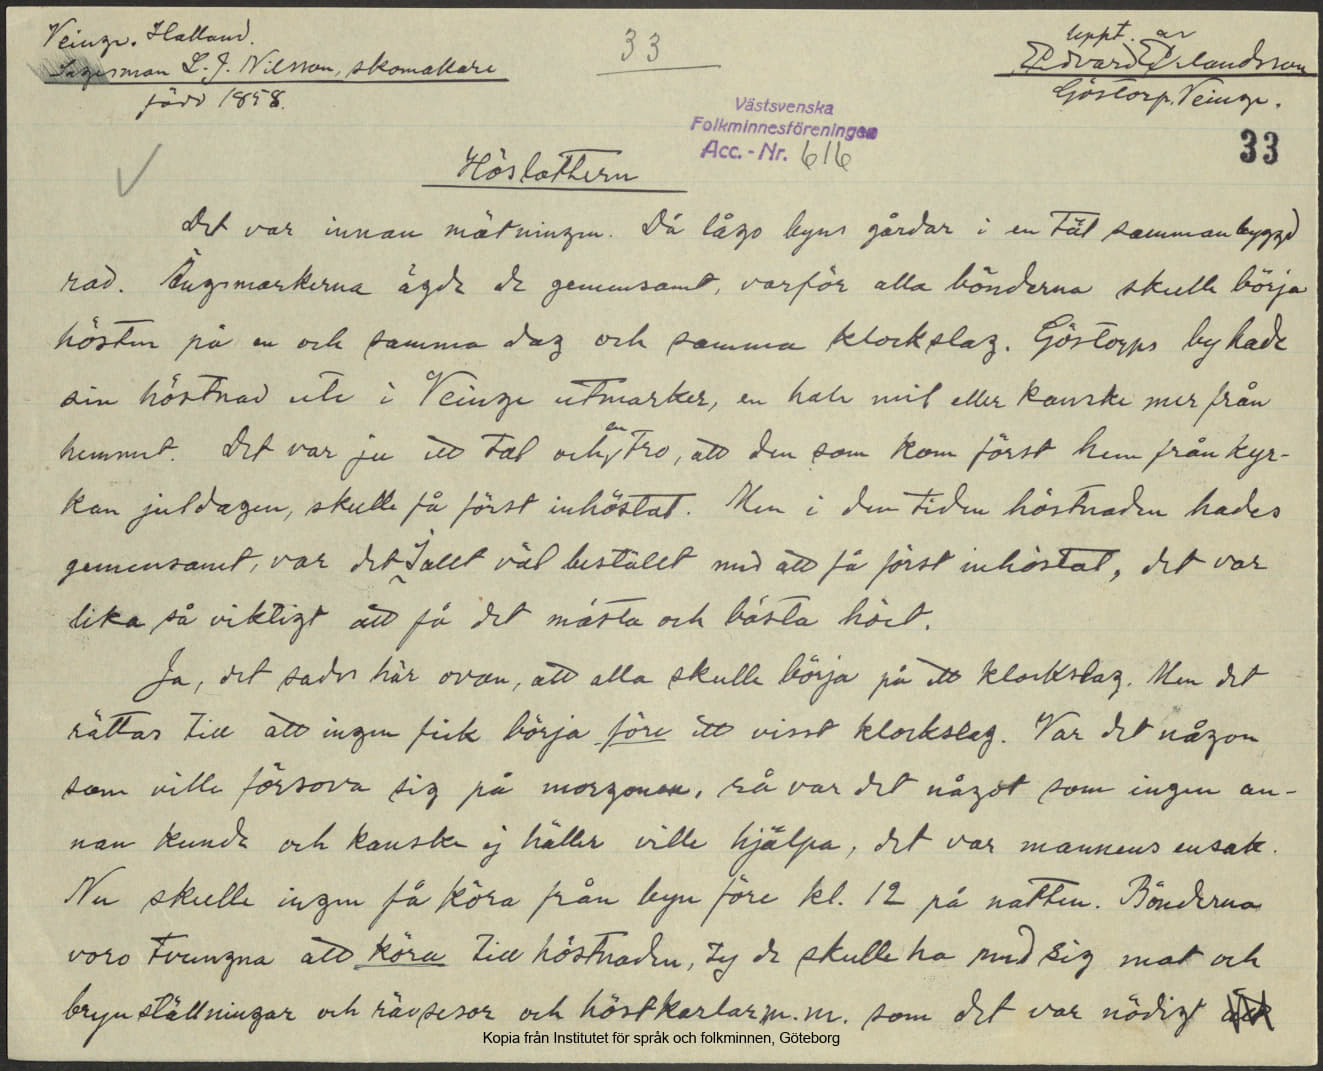 Veinge. Halland.
Sagesman L. J. Nilsson, skomakare
född 1858.
33
uppt. av
Edvard Erlandsson
Göstorp. Veinge.
33
Västsvenska
Folkminnesföreningen
Acc. - Nr. 616
Höslåttern
Det var innan mätningen. Då lågo byns gårdar i en tät sammanbyggd
rad. Ängsmarkerna ägde de gemensamt, varför alla bönderna skulle börja
hösten på en och samma dag och samma klockslag. Göstorps by hade
sin höstnad ute i Veinge utmarker, en halv mil eller kanske mer från
hemmet. Det var ju ett tal och en tro, att den som kom först hem från kyr-
kan juldagen, skulle få först inhöstat. Men i den tiden höstnaden hades
gemensamt, var det i allt väl bestället med att få först inhöstat, det var
lika så viktigt att få det mästa och bästa höet.
Ja, det sades här ovan, att alla skulle börja på ett klockslag. Men det
rättas till att ingen fick börja före ett visst klockslag. Var det någon
som ville försova sig på morgonen, så var det något som ingen an-
nan kunde och kanske ej häller ville hjälpa, det var mannens ensak.
Nu skulle ingen få köra från byn före kl. 12 på natten. Bönderna
voro tvungna att köra till höstnaden, ty de skulle ha med sig mat och
brynställningar och rävsesor och höstkarlar m. m. som det var nödigt
Kopia från Institutet för språk och folkminnen, Göteborg